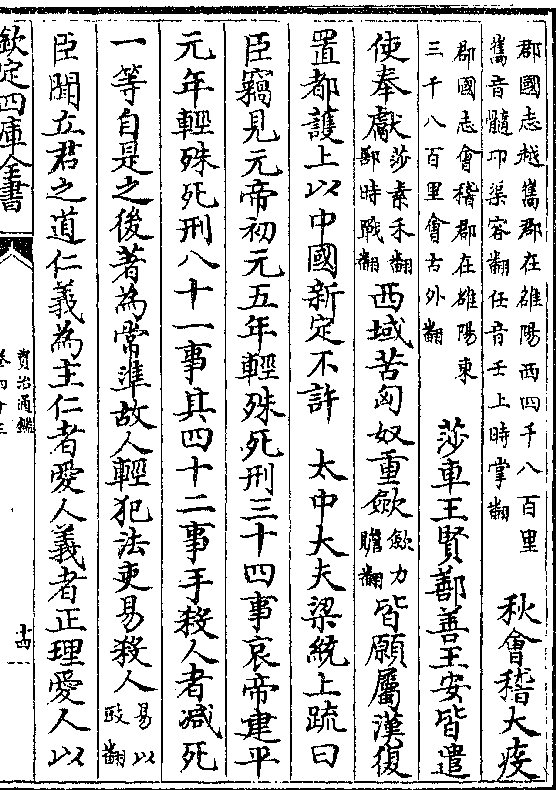 郡國志越嶲郡在雒陽西四千八百里
嶲音髓卭渠容翻任音壬上時掌翻
秋會稽大疫
郡國志會稽郡在雒陽東
三千八百里會古外翻
莎車王賢鄯善王安皆遣
使奉獻
莎素禾翻
鄯時戰翻
西域苦匈奴重歛
歛力
贍翻
皆願屬漢復
置都護上以中國新定不許 太中大夫梁統上疏曰
臣竊見元帝初元五年輕殊死刑三十四事哀帝建平
元年輕殊死刑八十一事其四十二事手殺人者減死
一等自是之後著為常準故人輕犯法吏易殺人
易以
豉翻
臣聞立君之道仁義為主仁者愛人義者正理愛人以
欽定四庫全書
資治通鑑
卷四十三
十四